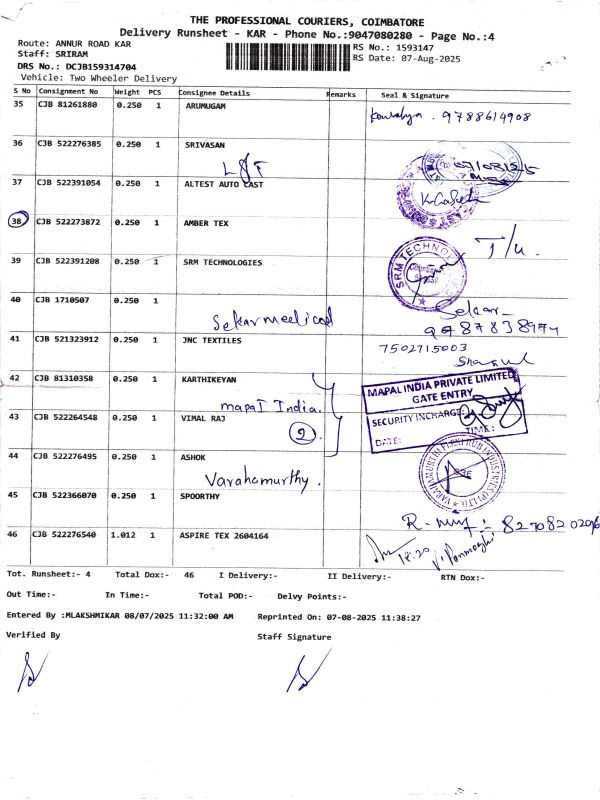 THE PROFESSIONAL COURIERS, COIMBATORE
Delivery Runsheet - KAR - Phone No.:9047080280 - Page No.:4
Route: ANNUR ROAD KAR
Staff: SRIRAM
DRS No.: DCJB159314704
Vehicle: Two Wheeler Delivery
RS No.: 1593147
RS Date: 07-Aug-2025
S No Consignment No Weight PCS Consignee Details Remarks Seal & Signature
35 CJB 81261880 0.250 1 ARUMUGAM
9788614908
36 CJB 522276385 0.250 1 SRIVASAN
L&T
07/08/25
37 CJB 522391054 0.250 1 ALTEST AUTO CAST
38 CJB 522273872 0.250 1 AMBER TEX
T/u.
39 CJB 522391208 0.250 1 SRM TECHNOLOGIES
SRM TECHNOLOGIES
40 CJB 1710507 0.250 1
Sekar medical
Sekar
9787838974
41 CJB 521323912 0.250 1 JNC TEXTILES
7502715003
42 CJB 81310358 0.250 1 KARTHIKEYAN
mapal India.
MAPAL INDIA PRIVATE LIMITED
GATE ENTRY
SECURITY INCHARGE:
DATE: TIME:
43 CJB 522264548 0.250 1 VIMAL RAJ
2
44 CJB 522276495 0.250 1 ASHOK
Varahamurthy.
45 CJB 522366070 0.250 1 SPOORTHY
R.
8270820296
46 CJB 522276540 1.012 1 ASPIRE TEX 2604164
18.20
Tot. Runsheet:- 4 Total Dox:- 46 I Delivery:- II Delivery:- RTN Dox:-
Out Time:- In Time:- Total POD:- Delvy Points:-
Entered By :MLAKSHMIKAR 08/07/2025 11:32:00 AM Reprinted On: 07-08-2025 11:38:27
Verified By Staff Signature